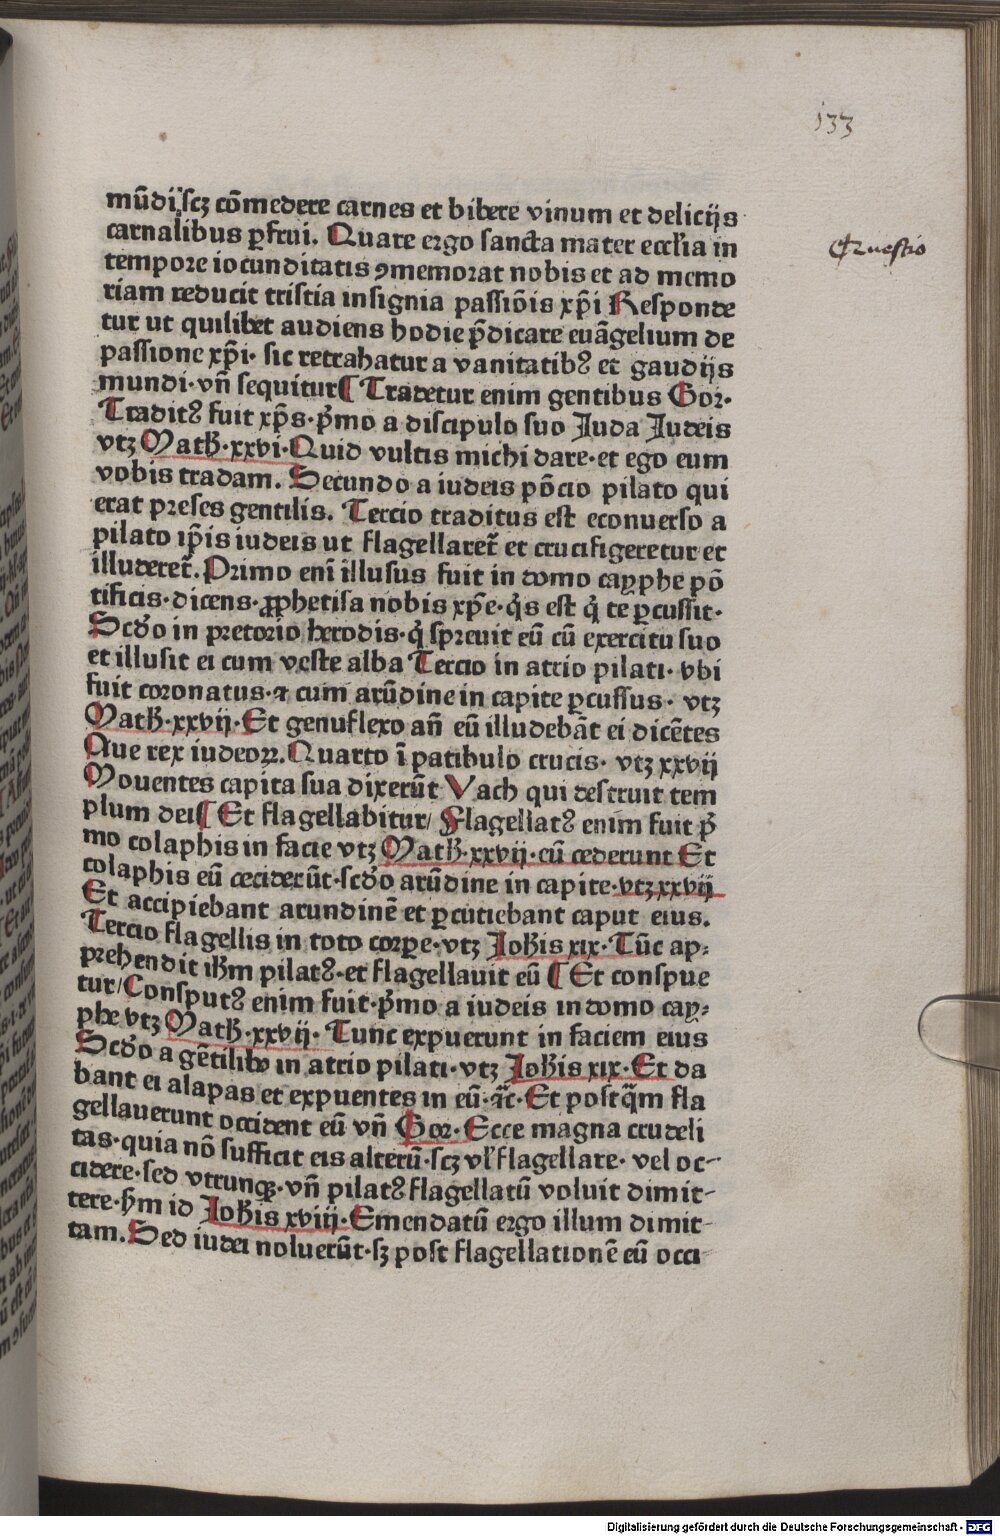 133
mūdi scꝫ cōmedere carnes et bibere vinum et delicijs
carnalibus ꝑfrui. Quare ergo sancta mater eccl'ia in
Questio
tempore iocunditatis ꝯmemorat nobis et ad memo
riam reducit tristia insignia passiōis xp̄i Responde
tur ut quilibet audiens hodie p̄dicare euāgelium de
passione xp̄i· sic retrahatur a vanitatibꝰ et gaudijs
mundi·vn̄ sequitur¶ Tradetur enim gentibus Gor·
Traditꝰ fuit xp̄s·p̄mo a discipulo suo Juda Judeis
vtꝫ Math·xxvi·Quid vultis michi dare·et ego eum
vobis tradam. Secundo a iudeis pōcio pilato qui
erat preses gentilis. Tercio traditus est econuerso a
pilato ip̄is iudeis ut flagellaret᷑ et crucifigeretur et
illuderet᷑. Primo eni illusus fuit in domo cayphe pō
tificis·dicens·ꝓphetisa nobis xp̄e·q̇s est q̇ te ꝑcussit·
Scd̄o in pretorio herodis·q̇ spreuit eū cū exercitu suo
et illusit ei cum veste alba Tercio in atrio pilati· vbi
fuit coronatus·⁊ cum arūdine in capite ꝑcussus· vtꝫ
Math·xxvij·Et genuflexo an̄ eū illudebāt ei dicētes
Aue rex iudeoꝝ. Quarto ī patibulo crucis· vtꝫ xxvij
Mouentes capita sua dixerūt Vach qui destruit tem
plum dei¶ Et flagellabitur/ Flagellatꝰ enim fuit p̄
mo colaphis in facie vtꝫ Math·xxvij·cū cederunt Et
colaphis eū ceciderūt·scd̄o arūdine in capite·vtꝫ xxvij
Et accipiebant arundinē et ꝑcutiebant caput eius.
Tercio flagellis in toto corꝑe·vtꝫ Joh̄is xix·Tūc ap⸗
prehendit ih̄m pilatꝰ·et flagellauit eū ¶ Et conspue
tur/Consputꝰ enim fuit·p̄mo a iudeis in domo cay⸗
phe vtꝫ Math·xxvij· Tunc expuerunt in faciem eius
Scd̄o a gētilibꝰ in atrio pilati·vtꝫ Joh̄is xix·Et da
bant ei alapas et expuentes in eū·⁊c̄·Et postq̄m fla
gellauerunt occident eū vn̄ Gor·Ecce magna crudeli
tas·quia nō sufficit eis alterū·scꝫ vl' flagellare· vel oc-
cidere·sed vtrunqꝫ·vn̄ pilatꝰ flagellatū voluit dimit-
tere·h̄m id Joh̄is xviij·Emendatū ergo illum dimit-
tam. Sed iudei noluerūt·sꝫ post flagellationē eū occi-
Digitalisierung gefördert durch die Deutsche Forschungsgemeinschaft - DFG